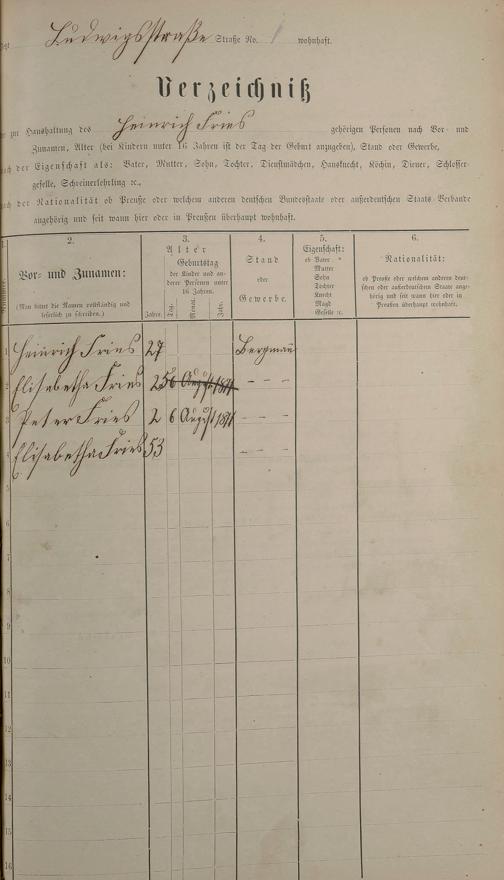 Ludwigsstraße Straße No. 1 wohnhaft.
Verzeichniß
zur Haushaltung des Heinrich Fries gehörigen Personen nach Vor- und
Zunamen, Alter (bei Kindern unter 16 Jahren ist der Tag der Geburt anzugeben), Stand oder Gewerbe,
nach der Eigenschaft als: Vater, Mutter, Sohn, Tochter, Dienstmädchen, Hausknecht, Köchin, Diener, Schlosser-
geselle, Schreinerlehrling ꝛc.,
nach der Nationalität ob Preuße oder welchem anderen deutschen Bundesstaats oder außerdeutschen Staats-Verbande
angehörig und seit wann hier oder in Preußen überhaupt wohnhaft.
1. 2. 3. 4. 5. 6.
Nummer.
Vor- und Zunamen:
(Man bittet die Namen vollständig und
leserlich zu schreiben.)
Alter
Geburtstag
der Kinder und an-
derer Personen unter
16 Jahren.
Jahre. Tag. Monat. Jahr.
Stand
oder
Gewerbe.
Eigenschaft:
ob Vater
Mutter
Sohn
Tochter
Knecht
Magd
Geselle ꝛc.
Nationalität:
ob Preuße oder welchem anderen deut-
schen oder außerdeutschen Staate ange-
hörig und seit wann hier oder in
Preußen überhaupt wohnhaft.
1 Heinrich Fries 27 Bergmann
2 Elisabetha Fries 25 6 August 1871 - - -
3 Peter Fries 2 6 August 1871 - - -
4 Elisabetha Fries 53 - - -
5
6
7
8
9
10
11
12
13
14
15
16